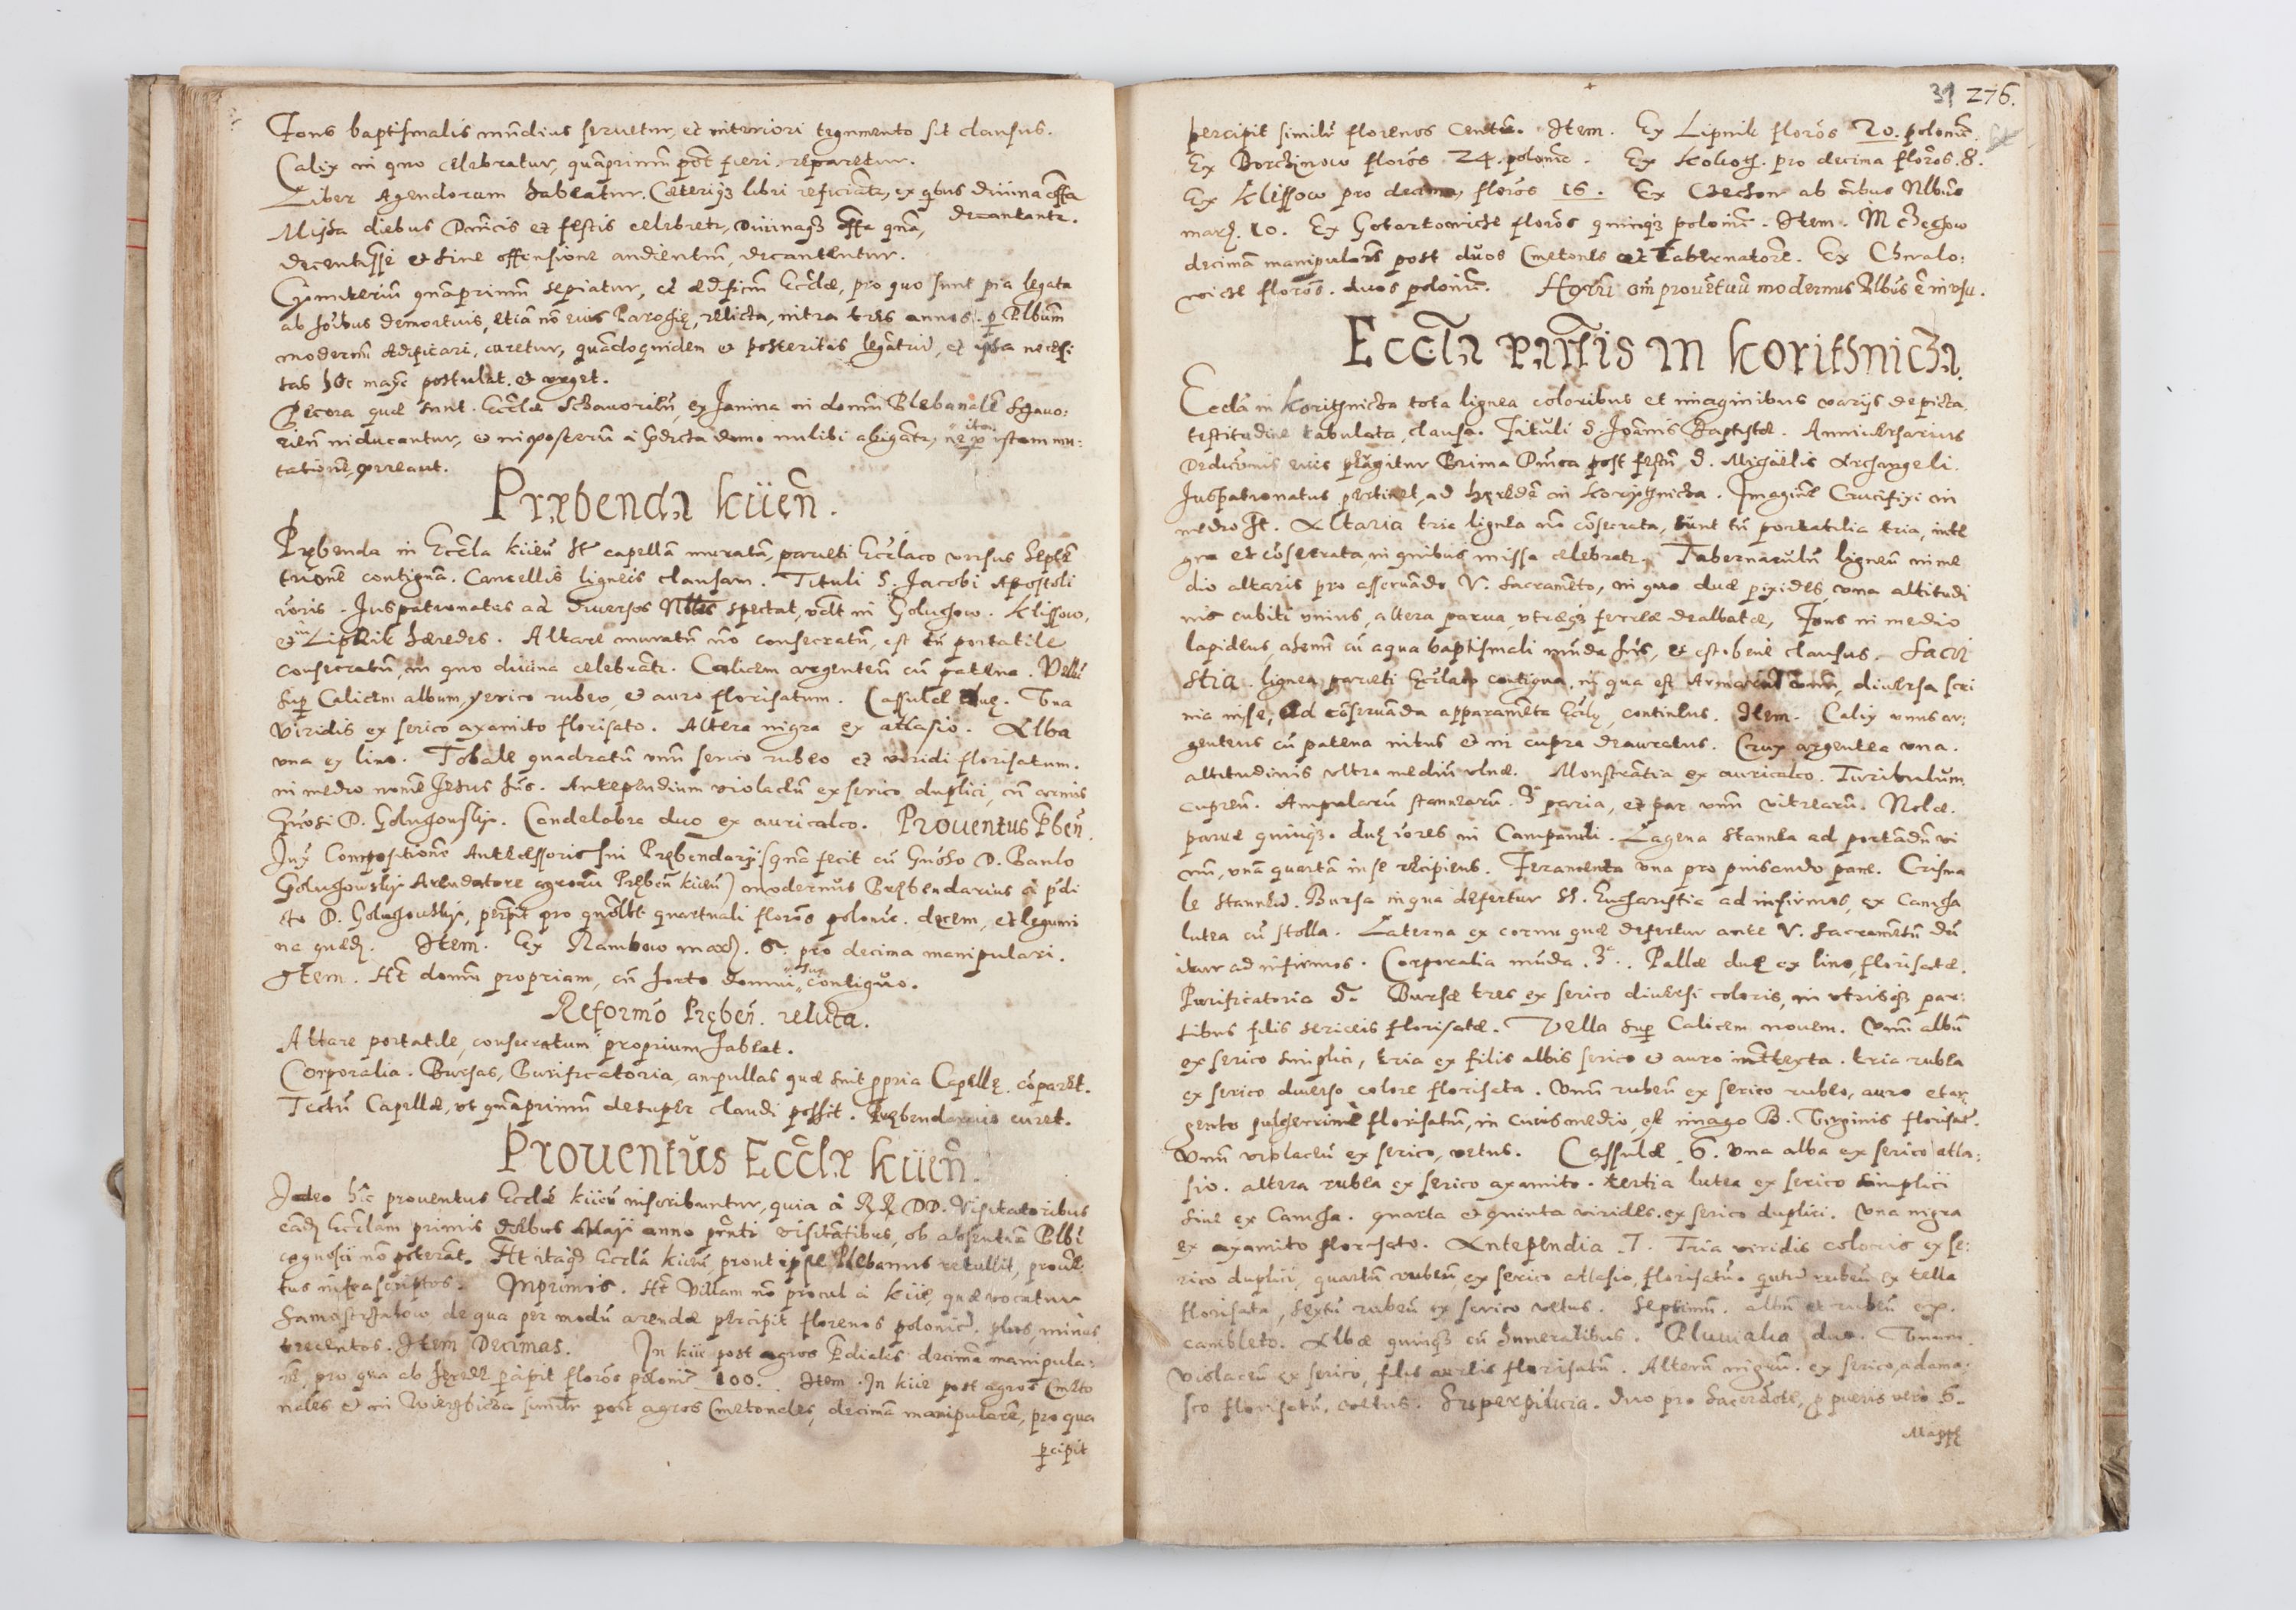 Fons baptismalis mundius seruetur, et interiori tegumento sit clausus.
Calix in quo celebratur, quāprimū pōt fieri, reparetur.
Liber Agendorum habeatur. Cæteriqȝ libri reficiātr, ex qbus diuina offa
decantantr.
Missa diebus Dn̄icis et festis celebretr, Diuinaqȝ offa qn̄a,
decentissē et sine offensione audientiū, decantentur.
Cæmiteriū quāprimum sepiatur, et ædificiū Eccłæ, pro quo sunt pia legata
ab hoībus demortuis, etiā nō eius Parochię, relicta, intra tres annos, p Plbum̄
modernū ædificari, curetur, quādoquidem et posteritas, et ipsa necessi
tas hōc maxe postulat et vrget.
Pecora quæ sunt Eccłæ ex Janina in domū Plebanalē
inducantur, et inposterū à pdicta domo nullibi abigātr, ne ita p istam mu:
tationē, pereant.
Præbenda kiień.
Prębenda in Eccła kiień Ht̄ capellā muratā, parieti Ecclæ versus Septē
trionē contiguā. Cancellis ligneis clausam. Tituli S. Jacobi Apostoli
Ioris. Juspatronatus ad diuersos Nobiles spectat, vdlt in Goluchow. Klissow,
et in Lipnik hæredes. Altare muratū nō consecratū, est tn̄ portatile
consecratū, in quo diuina celebrātr. Calicem argenteū cū patena. Vellū
sup Calicem album, serico rubeo, et auro florisatum. Cassulæ duę. Vna
viridis ex serico axamito florisato. Altera nigra ex atlasio. Alba
vna ex lino. Tobale quadratū vnū serico rubeo et viridi florisatum.
in medio nomē Jesus hn̄s. Antependium violaceū ex serico duplici, cū armis
Gn̄osi D. Goluchowskÿ. Candelabra duo ex auricalco. Prouentus Pben̄.
Jux Compositionē Antecessoris sui Prębendarÿ (quā fecit cū Gn̄oso D. Paulo
Goluchowskÿ Arendatore agrorū Pręben̄ kiień) modernus Prębendarius à pdi
cto D. Goluchowskÿ, percipit pro quōlbt quartuali florōs polonic. decem, et legumi
na quædā. Item. Ex Rambow march. 6. pro decima manipulari.
Item. Ht̄ domū propriam, cū horto domui suæ contiguo.
Reformō Pręben̄. relicta.
Altare portatile, consecratum proprium habeat.
Corporalia. Bursas, Purificatoria, ampullas quæ sint ppria Capellę. cōparet.
Tectū Capellæ, vt quāprimū desuper claudi possit. Prębendarius curet.
Prouentus Eccłæ kiień.
Ideo hic prouentus Eccłæ kiień inscribuntur, quia à RR DD. Visitatoribus
eandē Ecclam primis diebus Maÿ anno pn̄ti visitātibus, ob absentiā Plbī
cognosci nō poterāt. Ht̄ itaqȝ Eccłā kiień prout ipse Plebanus retulit, prouē
tus infrascriptos. Inprimis. Ht̄ Villam nō procul à kiie, quæ vocatur
Samostrzalow de qua per modū arendæ percipit florenos polonic. plus, minus
trecentos. Item Decimas. In kiie post agros Pdiales decimā manipula:
rē, pro qua ab Hęrede pcipit florōs polonic 100. Item. In kiie post agros Cmeto
nales et in Wierzbicza similr post agros Cmetonales, decimā manipularē, pro qua
pcipit
31 276.
percipit similr florenos Centū. Item. Ex Lipnik florōs 20. polonic.
Ex Borczinow florōs 24. polonic. Ex Kokoth. pro decima florōs. 8.
Ex Klissow pro decima, florōs 16. Ex Czechow ab oībus Nlbus
march. 10. Ex Gotartowicze florōs quinqȝ polonic. Item. In Czechow
decimā manipularē post duos Cmetones et Tabernatorē. Ex Chwalo:
wicze florōs. duos polonic. Horū om̄ prouētuū modernus Plbus ē in vsu.
Eccła Parłis in Korithnicza.
Eccła in Korithnicza tota lignea coloribus et imaginibus varÿs depicta,
testitudine tabulata, clausa. Tituli S. Joānis Baptistæ. Anniuersarius
Dedicōnis eius pagitur Prima Dn̄ica post festū S. Michaëlis Archangeli.
Juspatronatus pertinet, ad hęredē in Korÿthnicza. Imaginē Crucifixi in
medio Ht̄. Altaria tria lignea nō cōsecrata, sunt tn̄ portatilia tria, inte
gra et cōsecrata, in quibus missa celebratr. Tabernaculū ligneū in me
dio altaris pro asseruando V. Sacramēto, in quo duæ pixides, vna altitudi
nis cubiti vnius, altera parua, vtræqȝ ferreæ dealbatæ, Fons in medio
lapideus, ahenū cū aqua baptismali mūda hn̄s, et est benè clausus. Sacri
stia. lignea parieti Ecclæ contigua, in qua est Armariū vnū, diuersa scri
nia in se, ad cōseruanda apparamēta Eccłę, continēs. Item. Calix vnus ar:
genteus cū patena intus et in cupra deauratus. Crux argentea vna.
altitudinis vltra mediū vlnæ. Monstrātia ex auricalco. Turibulum
cupreū. Ampularū stannearū. 3 paria, et par vnū vitrearū. Nolæ.
paruæ quinqȝ. duę iores in Campanili. Lagena stannea ad portandū vi
nū, vnā quartā in se recipiens. Feramenta vna pro pinsando pane. Crisma
le stanneū. Bursa in qua defertur SS. Eucharistia ad infirmos, ex Camcha
lutea cū stolla. Laterna ex cornu quæ defertur ante V. Sacramētū dū
itur ad infirmos. Corporalia mūda. 3. Pallæ duę ex lino, florisatæ.
Purificatoria 5. Bursæ tres ex serico diuersi coloris, in vtrisqȝ par:
tibus filis sericeis florisatæ. Vella sup Calicem nouem. Vnū albū
ex serico simplici, tria ex filis albis serico et auro intexta. tria rubea
ex serico diuerso colore florisata. Vnū rubeū ex serico rubeo, auro et ar
gento pulcherrimè florisatū, in cuius medio, est imago B. Virginis florisat.
Vnū violaceū ex serico, vetus. Cassulæ 6. vna alba ex serico atla:
sio. altera rubea ex serico axamito. tertia lutea ex serico simplici
siue ex Camcha. quarta et quinta virides. ex serico duplici. Vna nigra
ex axamito florisato. Antependia 7. Tria viridis coloris ex se:
rico duplici, quartū rubeū, ex serico atlasio, florisatū. qutū rubeū ex tella
florisata, sextū rubeū ex serico vetus. Septimū. albū et rubeū ex.
cambleto. Albæ quinqȝ cū humeralibus. Pluuialia duo. Vnum
violaceū ex serico, filis aureis florisatū. Alterū nigrū. ex serico, adama:
sco florisatū, vetus. Superpilicia. duo pro Sacerdote, p pueris vero 6.
Mappę